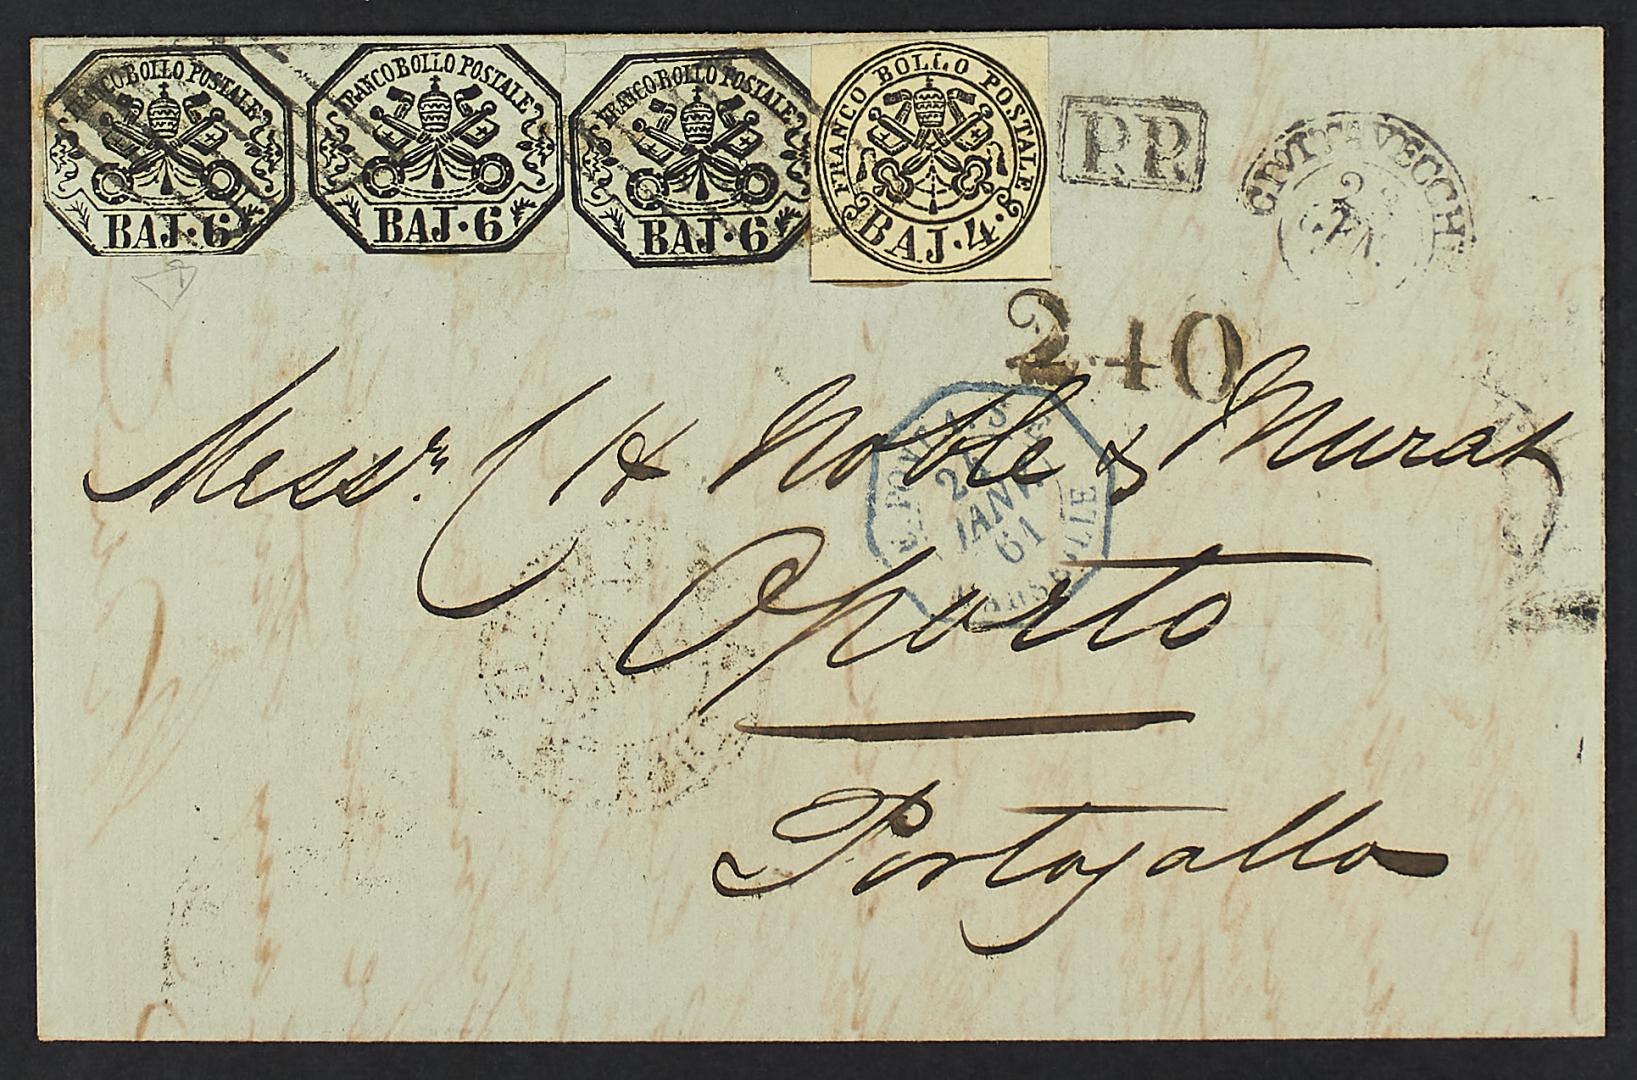 FRANCO BOLLO POSTALE
BAJ·6
FRANCO BOLLO POSTALE
BAJ·6
FRANCO BOLLO POSTALE
BAJ·6
FRANCO BOLLO POSTALE
BAJ·4·
P.P.
CIVITTAVECCHI
GEN.
240
Messrs C H Noble & Murat
Oporto
Portogallo
E. PONT.
JANV.
61
MARSEILLE